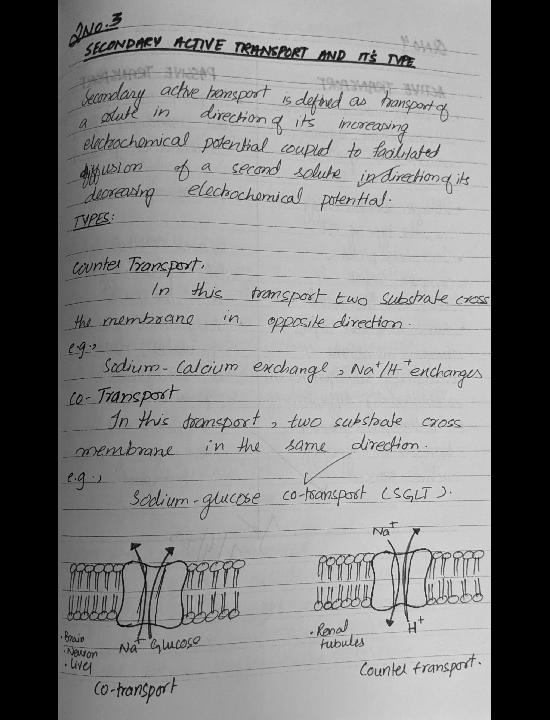 QNO.3
SECONDARY ACTIVE TRANSPORT AND IT'S TYPE
Secondary active transport is defined as transport of
a solute in direction of its increasing
electrochemical potential coupled to facilitated
diffusion of a second solute in direction of its
decreasing electrochemical potential.
TYPES:
Counter Transport.
In this transport two substrate cross
the membrane in opposite direction.
e.g.,
Sodium-Calcium exchange, Na⁺/H⁺ exchanges
Co-Transport
In this transport, two substrate cross
membrane in the same direction.
e.g.,
Sodium-glucose co-transport (SGLT).
Na⁺
• Brain
• Neuron
• Liver
Na⁺ Glucose
• Renal
tubules
H⁺
Co-transport
Counter transport.